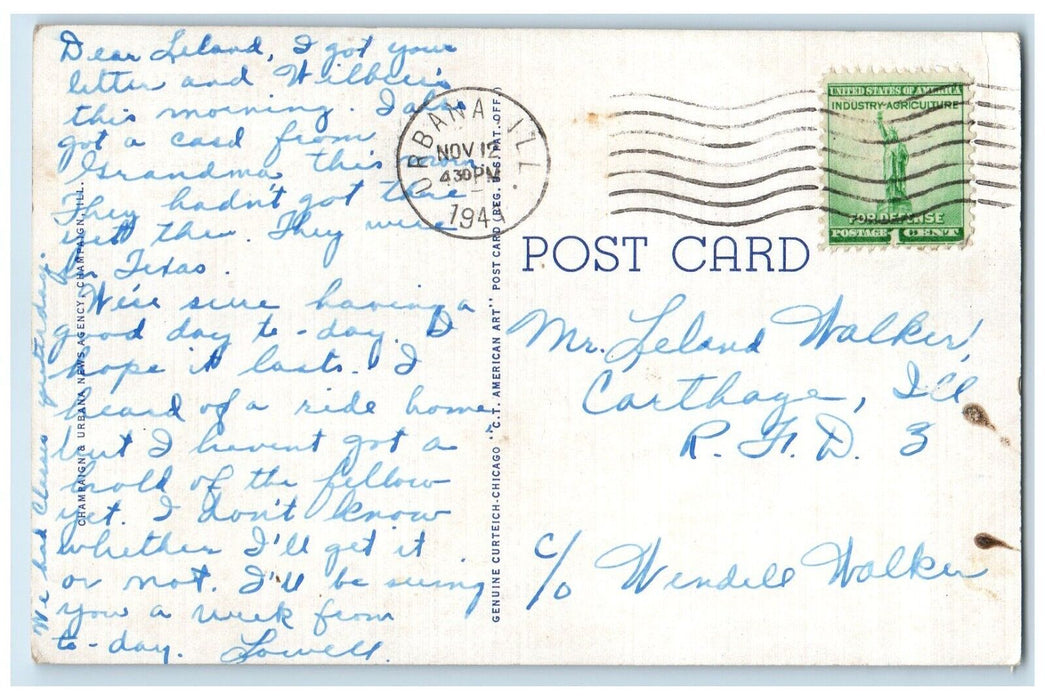 Dear Leland, I got your
letter and Wilbur's
this morning. I also
got a card from
Grandma this morn.
They hadn't got there
yet then. They were
in Texas.
We're sure having a
good day to-day. I
hope it lasts. I
heard of a ride home
but I havent got a
hold of the fellow
yet. I don't know
whether I'll get it
or not. I'll be seeing
you a week from
to-day. Lowell.
We had Classes yesterday.
CHAMPAIGN & URBANA NEWS AGENCY, CHAMPAIGN, ILL.
GENUINE CURTEICH-CHICAGO "C.T. AMERICAN ART" POST CARD (REG. U.S. PAT. OFF.)
URBANA, ILL.
NOV 12
430 PM
194
UNITED STATES OF AMERICA
INDUSTRY-AGRICULTURE
FOR DEFENSE
POSTAGE 1 CENT
POST CARD
Mr. Leland Walker,
Carthage, Ill
R. F. D. 3
c/o Wendell Walker